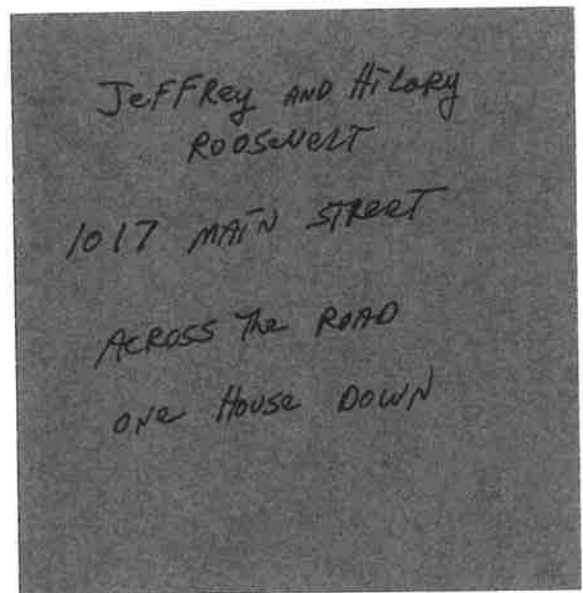 JeFFRey AND HiLaRy
ROOSeVeLT
1017 MAIN STReeT
ACROSS The ROAD
ONe House DOWN